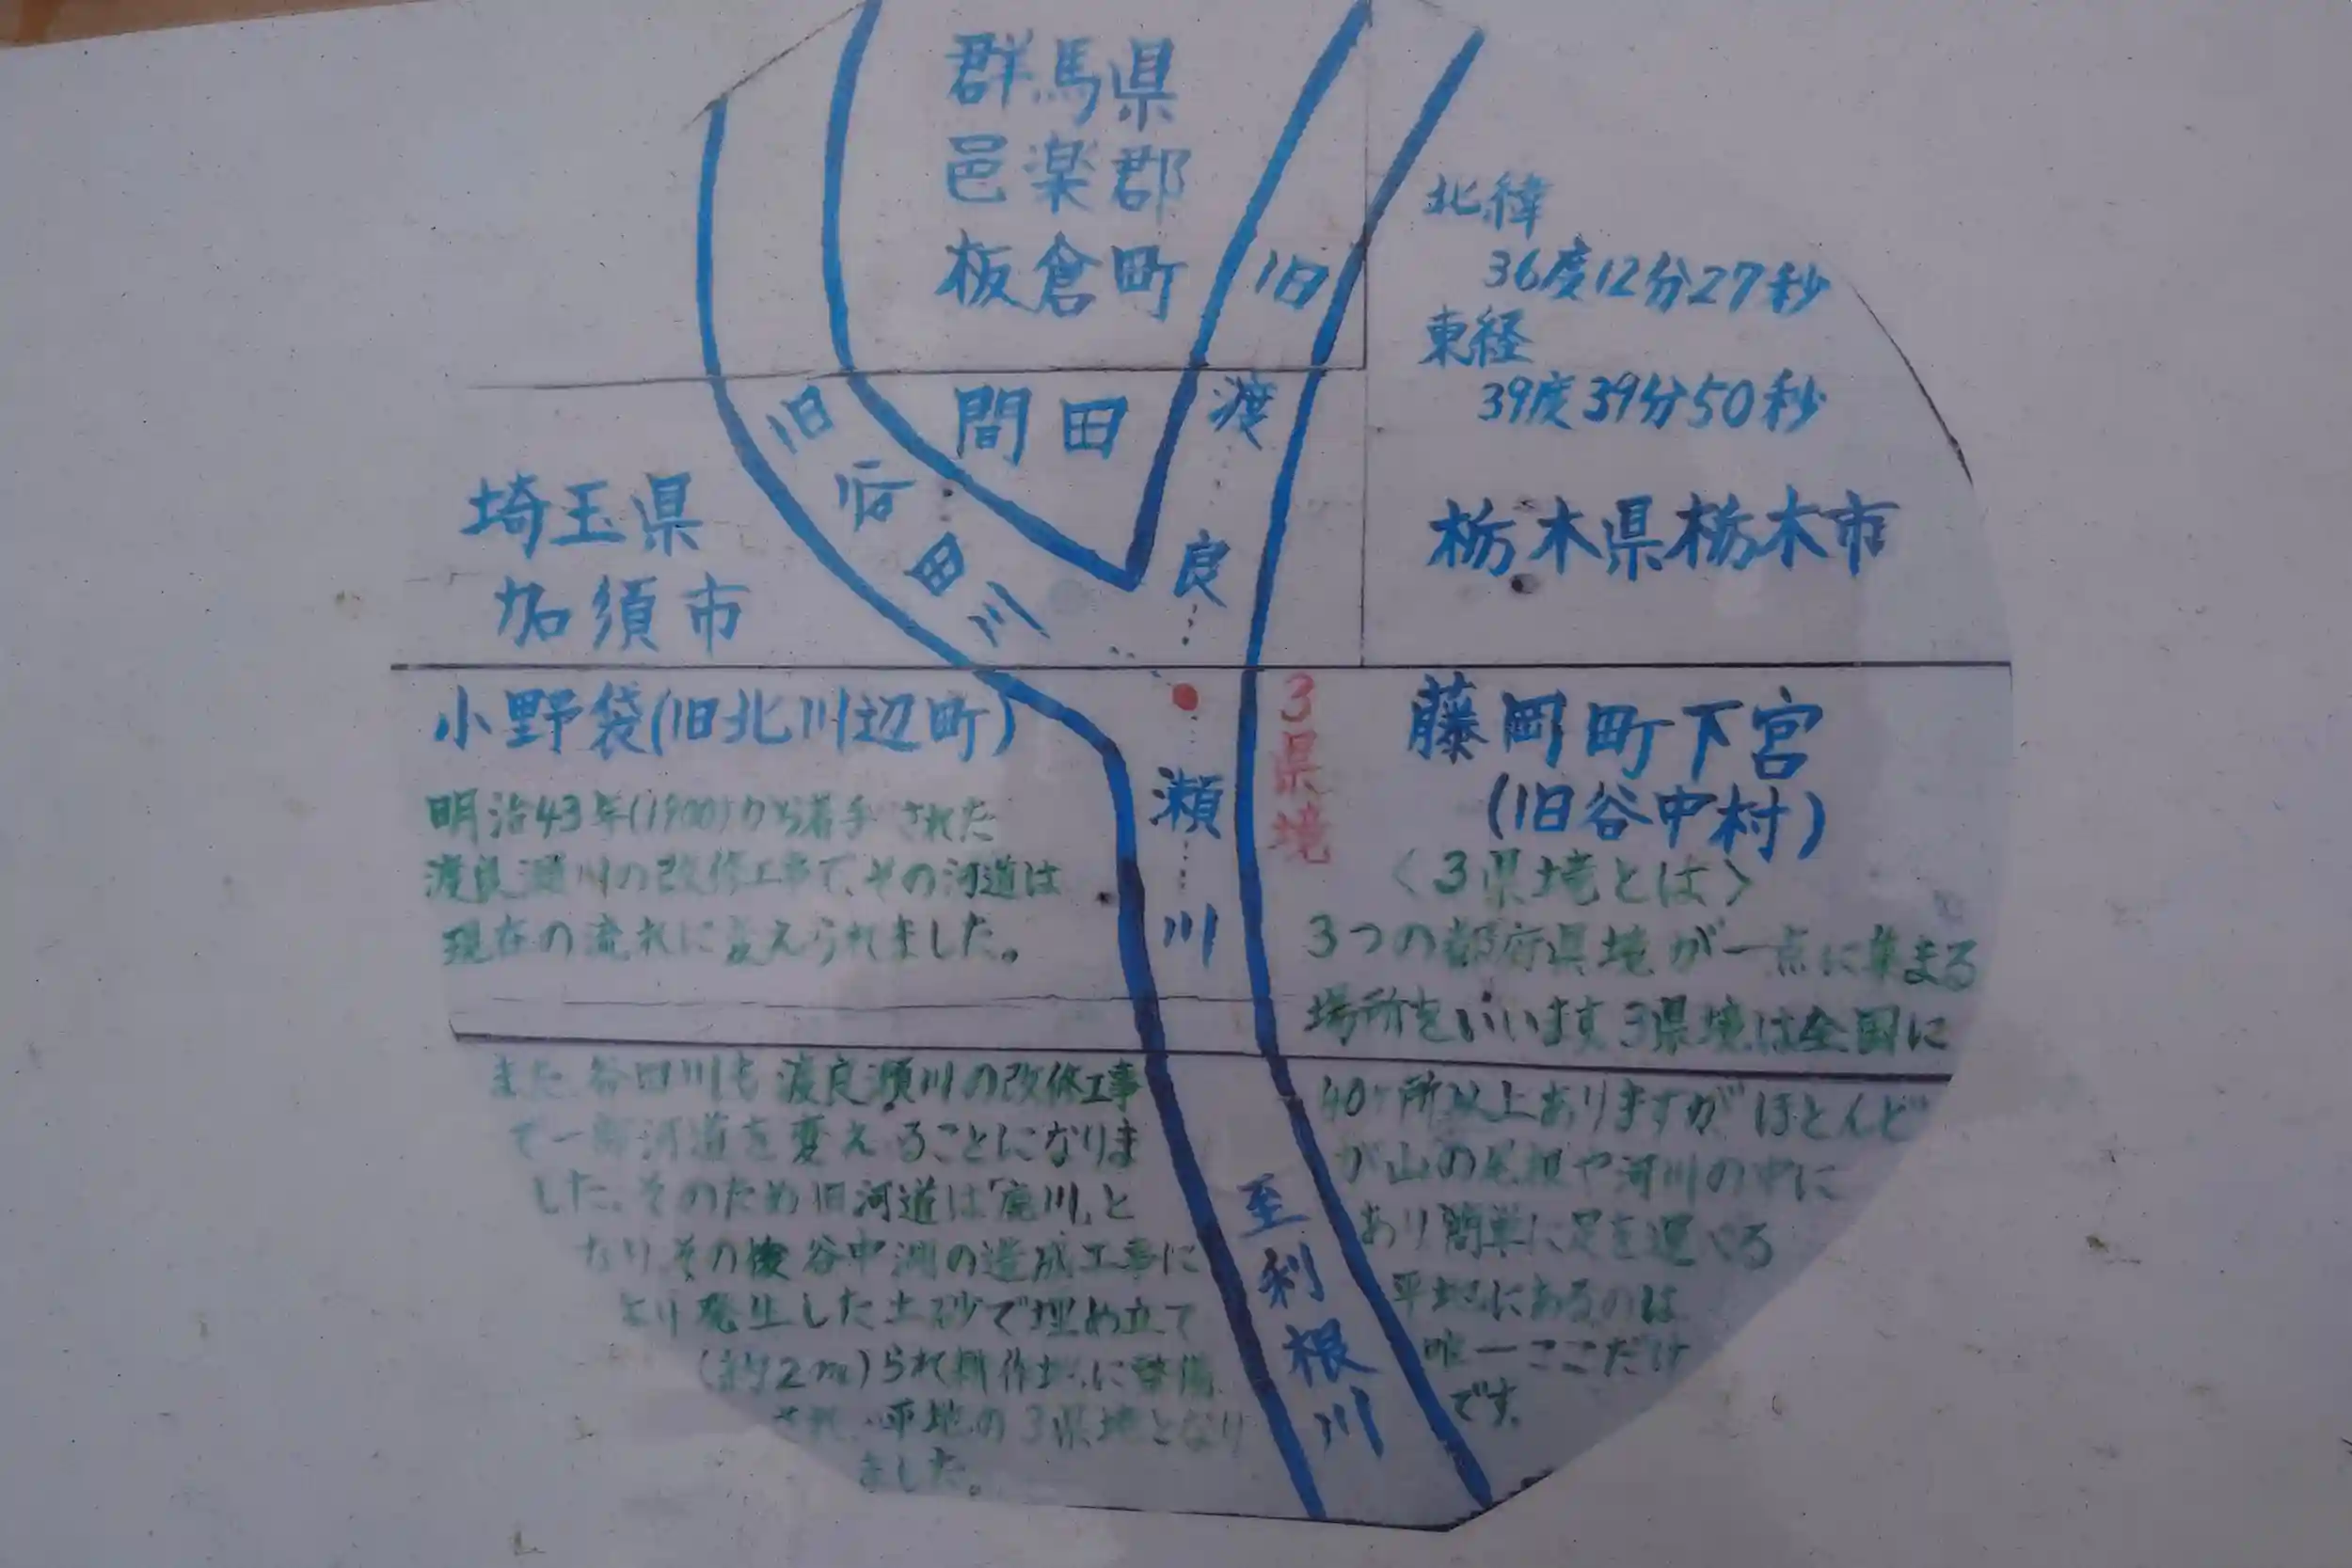 群馬県
邑楽郡
板倉町
間田
旧谷田川
旧渡良瀬川
北緯
36度12分27秒
東経
39度39分50秒
埼玉県
加須市
栃木県栃木市
小野袋(旧北川辺町)
3県境
藤岡町下宮
(旧谷中村)
明治43年(1900)から着手された
渡良瀬川の改修工事で、その河道は
現在の流れに変えられました。
また、谷田川も渡良瀬川の改修工事
で一部河道を変えることになりま
した。そのため旧河道は「廃川」と
なり、その後谷中湖の造成工事に
より発生した土砂で埋め立て
(約2m)られ耕作地に整備
され、平地の3県境となり
ました。
〈3県境とは〉
3つの都府県境が一点に集まる
場所をいいます3県境は全国に
40ヶ所以上ありますがほとんど
が山の尾根や河川の中に
あり簡単に足を運べる
平地にあるのは
唯一ここだけ
です。
至利根川